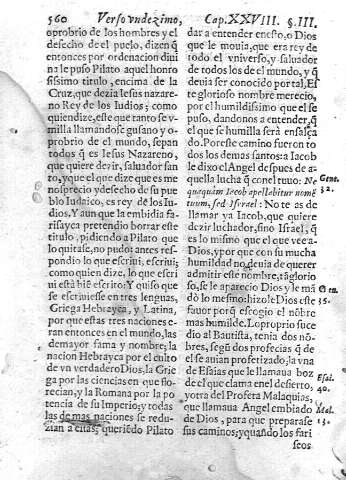 560 Verso vndezimo, Cap. XXVIII. §. III.
oprobrio de los hombres y el
desecho de el puelo, dizen q̃
entonces por ordenacion diui
na le puso Pilato aquel honro
sissimo titulo, encima de la
Cruz, que dezia Iesus nazare-
no Rey de los Iudios; como
quien dize, este que tanto se v-
milla llamandose gusano y o-
probrio de el mundo, sepan
todos q̃ es Iesus Nazareno,
que quiere dezir, saluador san
to, y que el que dize que es me
nosprecio y desecho de su pue
blo Iudaico, es rey de los Iu-
dios. Y aun que la embidia fa-
risayca pretendio borrar este
titulo, pidiendo a Pilato que
lo quitase, no pudo: antes res-
pondio lo que escriui, escriui;
como quien dize, lo que escri
ui està bie escrito: Y quiso que
se escriuiesse en tres lenguas,
Griega Hebrayca, y Latina,
por que estas tres naciones e-
ran entonces en el mundo, las
de mayor fama y nombre; la
nacion Hebrayca por el culto
de vn verdadero Dios, la Grie
ga por las ciencias en que flo-
recian, y la Romana por la po
tencia de su Imperio; y todas
las de mas naciones se redu-
zian a estas; queriẽdo Pilato
dar a entender en esto, o Dios
que le mouia, que era rey de
todo el vniuerso, y saluador
de todos los de el mundo, y q̃
deuia ser conocido por tal. Es
te glorioso nombre merecio,
por el humildissimo que el se
puso, dandonos a entender, q̃
el que se humilla serà ensalça
do. Por este camino fueron to
dos los demas santos: a Iacob
le dixo el Angel despues de a-
quella lucha q̃ con el tuuo: Ne
quaquàm Iacob apellabitur nomẽ
tuum, sed Israel: No te as de
llamar ya Iacob, que quiere
dezir luchador, sino Israel, q̃
es lo mismo que el que vee a-
Dios, y por que con su mucha
humildad no deuia de querer
admitir este nombre, tã glorio
so, se le aparecio Dios y le mã
dò lo mesmo: hizole Dios este
fauor porq̃ escogio el nõbre
mas humilde. Lo proprio suce
dio al Bautista, tenia dos nõ-
bres, segũ dos profecias q̃ de
el se auian profetizado; la vna
de Esaias que le llamaua boz
de el que clama en el desierto,
y otra del Profeta Malaquias,
que llamaua Angel embiado
de Dios, para que preparase
sus caminos; y quãdo los fari
seos
Gene.
32.
35.
Esai.
40.